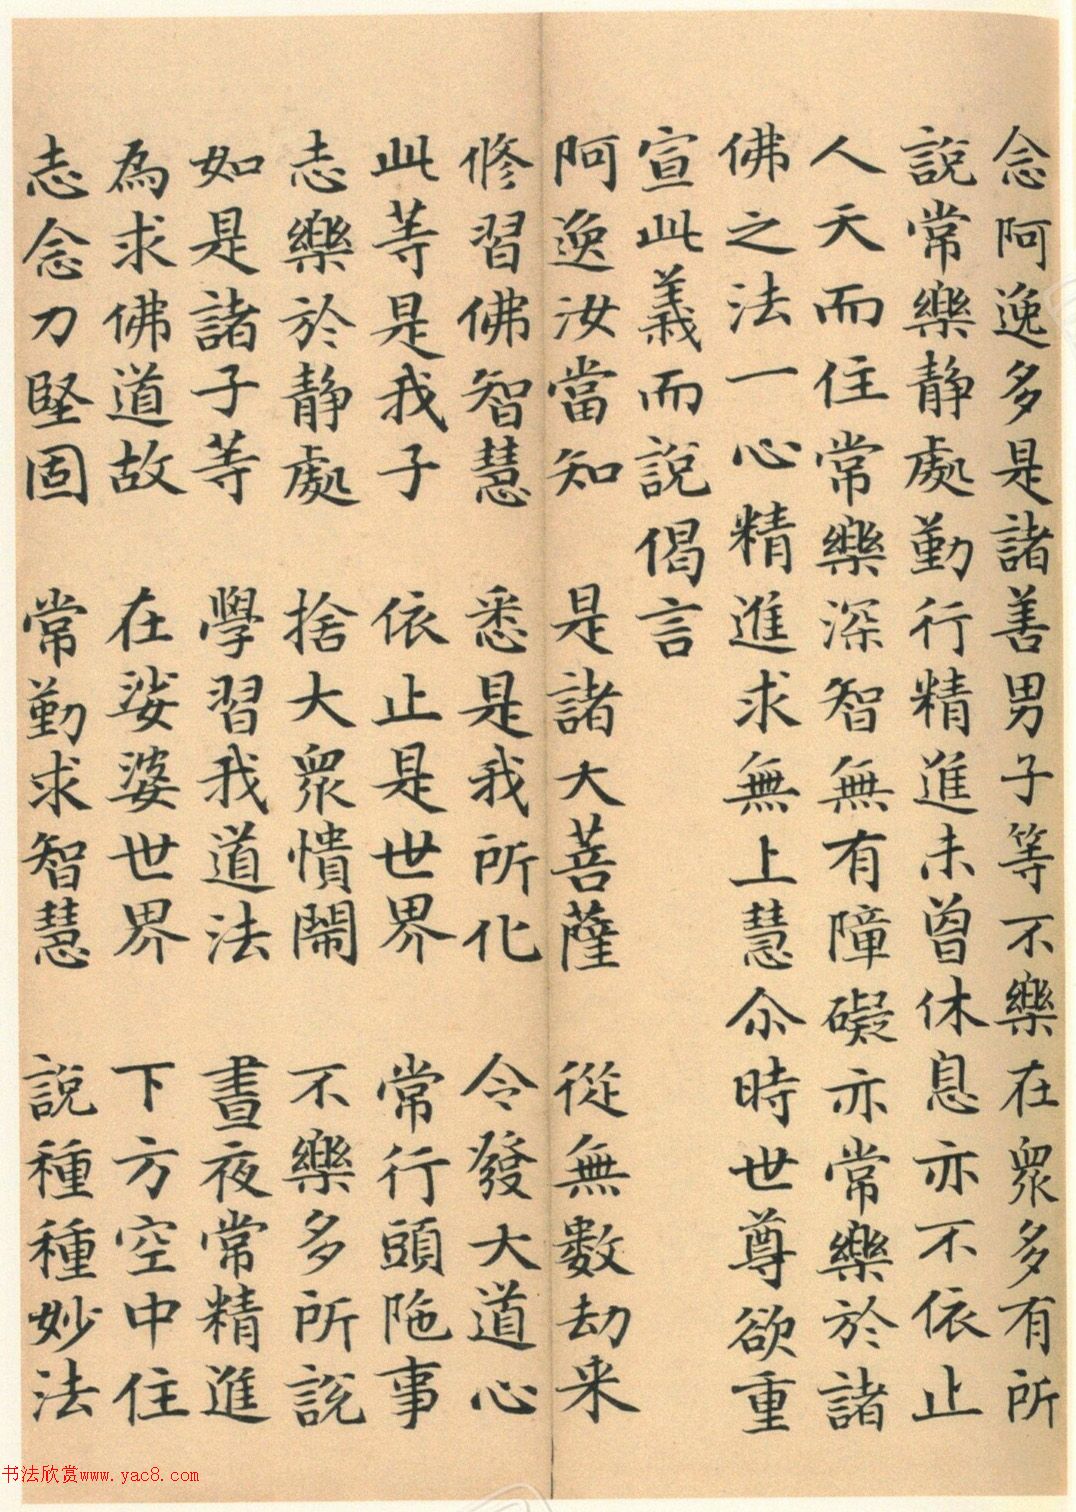 念阿逸多是諸善男子等不樂在眾多有所
說常樂静處勤行精進未曾休息亦不依止
人天而住常樂深智無有障礙亦常樂於諸
佛之法一心精進求無上慧尒時世尊欲重
宣此義而說偈言
阿逸汝當知　是諸大菩薩　從無數劫来
修習佛智慧　悉是我所化　令發大道心
此等是我子　依止是世界　常行頭陁事
志樂於静處　捨大眾憒鬧　不樂多所說
如是諸子等　學習我道法　晝夜常精進
為求佛道故　在娑婆世界　下方空中住
志念力堅固　常勤求智慧　說種種妙法
书法欣赏www.yac8.com